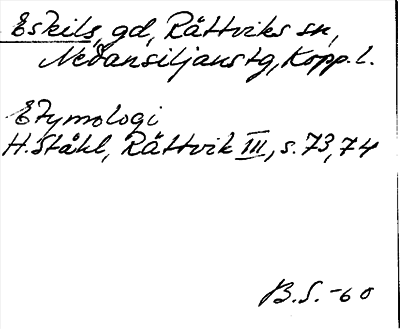 Eskils, gd, Rättviks sn,
Nedansiljans tg, Kopp. l.
Etymologi
H. Ståhl, Rättvik III, s. 73, 74
B.S. -60